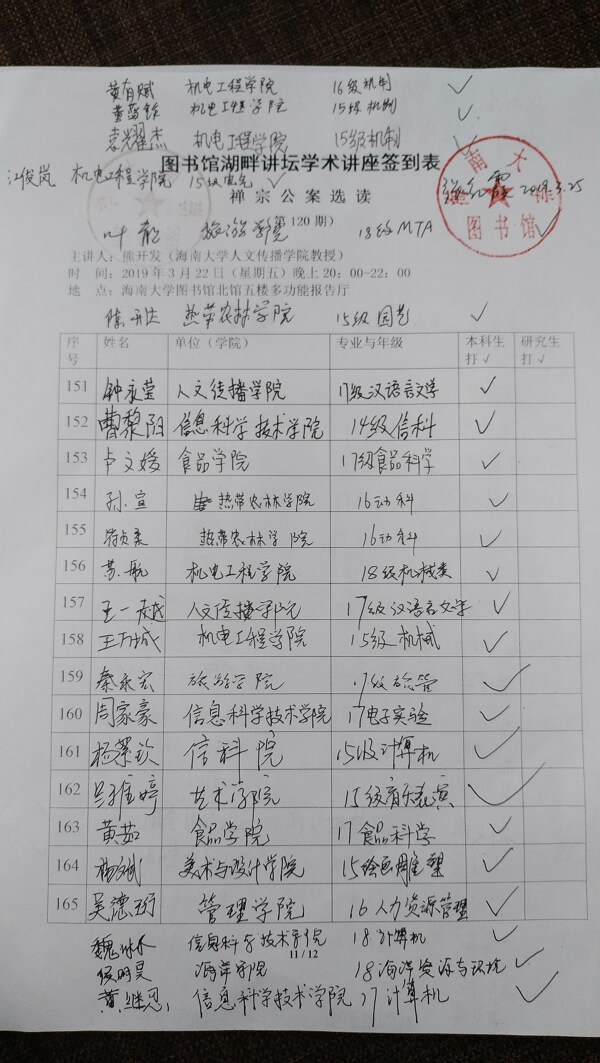 黄有斌 机电工程学院 16级机制 ✓
机电工程学院 15级机制 ✓
袁耀杰 机电工程学院 15级机制 ✓
图书馆湖畔讲坛学术讲座签到表
江俊岚 机电工程学院 15级电气 ✓
海南大学
图书馆
2019.3.25
禅宗公案选读
(第 120 期)
叶 旅游学院 18级MTA ✓
主讲人：熊开发（海南大学人文传播学院教授）
时 间：2019 年 3 月 22 日（星期五）晚上 20：00-22：00
地 点：海南大学图书馆北馆五楼多功能报告厅
陈开达 热带农林学院 15级园艺 ✓
序号 姓名 单位（学院） 专业与年级 本科生打✓ 研究生打✓
151 钟永莹 人文传播学院 17级汉语言文学 ✓
152 曹黎阳 信息科学技术学院 14级信科 ✓
153 卢文媛 食品学院 17级食品科学 ✓
154 孙宣 热带农林学院 16动科 ✓
155 热带农林学院 16动科 ✓
156 苏航 机电工程学院 18级机械类 ✓
157 王一越 人文传播学院 17级汉语言文学 ✓
158 王万城 机电工程学院 15级机械 ✓
159 秦永宏 旅游学院 17级旅管 ✓
160 周家豪 信息科学技术学院 17电子实验 ✓
161 杨蔡钦 信科院 15级计算机 ✓
162 吴雅婷 艺术学院 15级音乐表演 ✓
163 黄茹 食品学院 17食品科学 ✓
164 杨斌 美术与设计学院 15绘画雕塑 ✓
165 吴德珩 管理学院 16人力资源管理 ✓
魏冰木 信息科学技术学院 18计算机 ✓
11 / 12
侯明昊 海洋学院 18海洋资源与环境 ✓
黄继恩 信息科学技术学院 17计算机 ✓